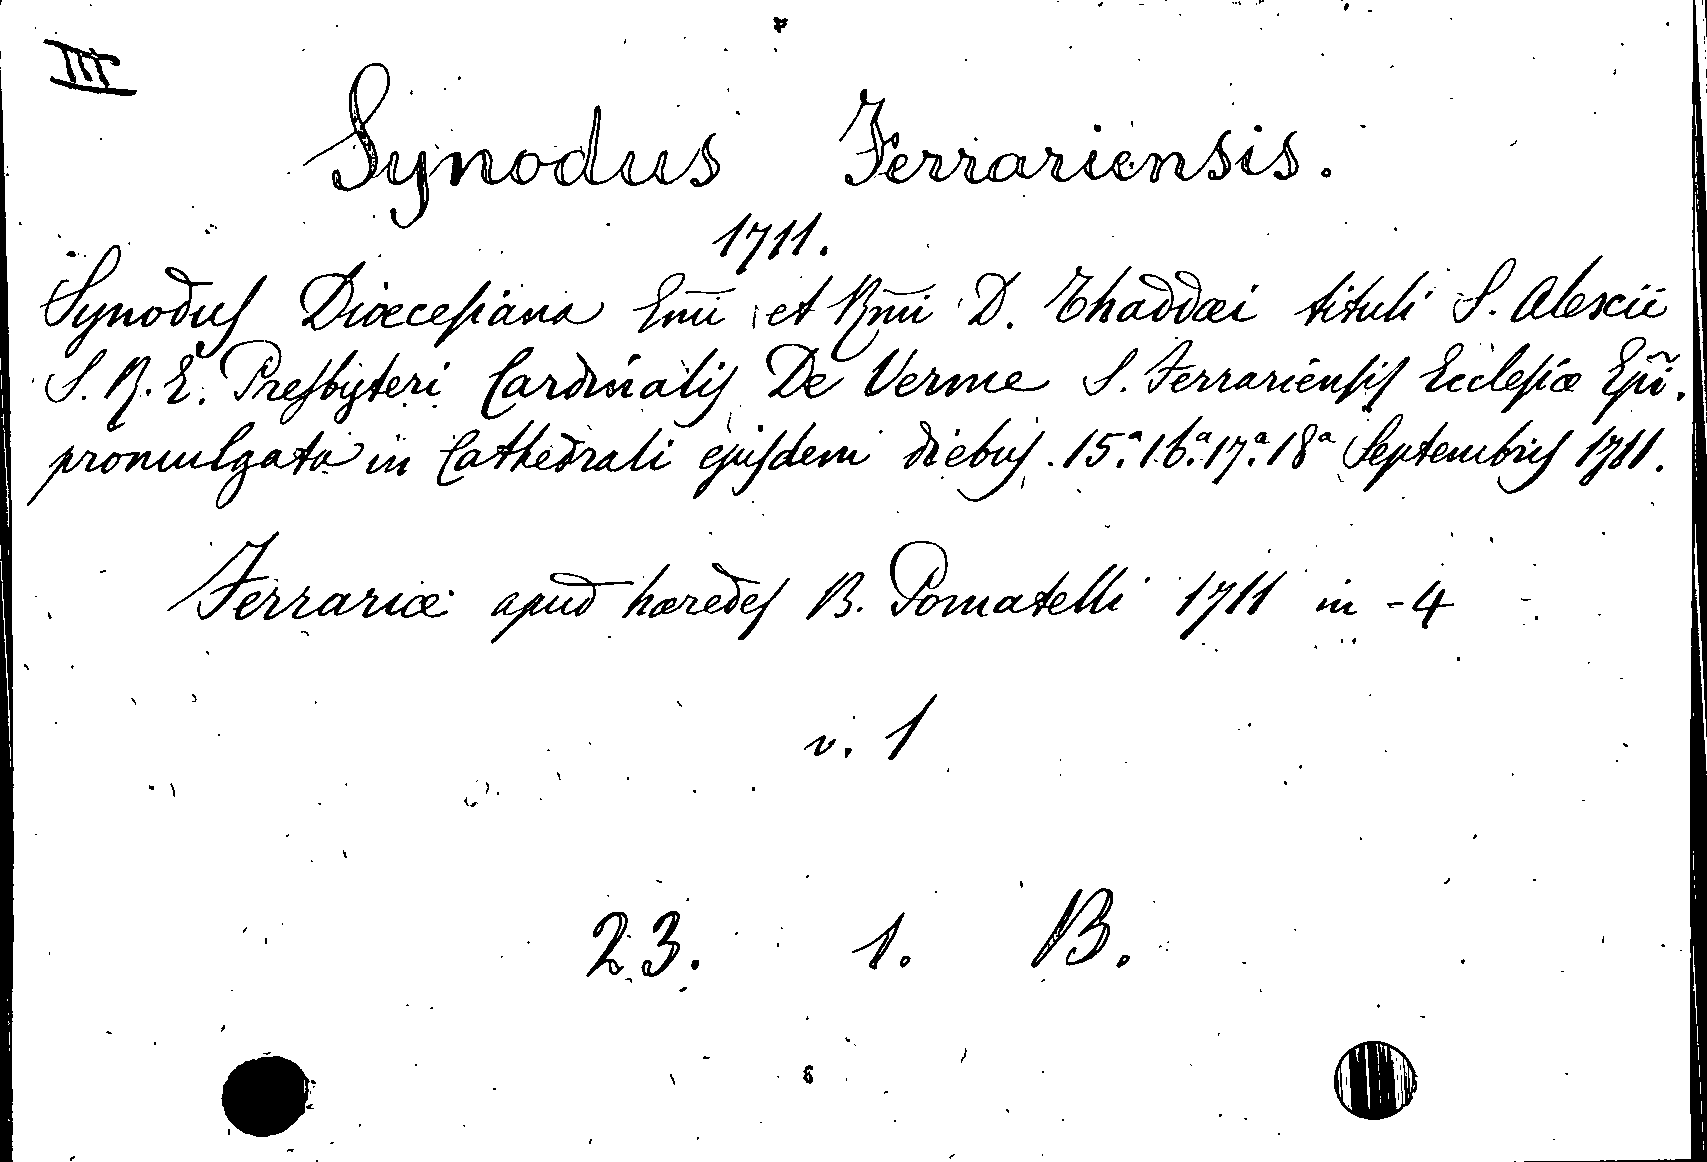 III
Synodus Ferrariensis.
1711.
Synodus Diœcesana Em̅i et Rm̅i D. Thaddæi tituli S. Alexii
S. R. E. Presbyteri Cardinalis De Verme S. Ferrariensis Ecclesiæ Epĩ.
promulgata in Cathedrali ejusdem diebus. 15.ª 16.ª 17.ª 18ª Septembris 1711.
Ferrariæ apud hæredes B. Pomatelli 1711 in -4
v. 1
23. 1. B.
6